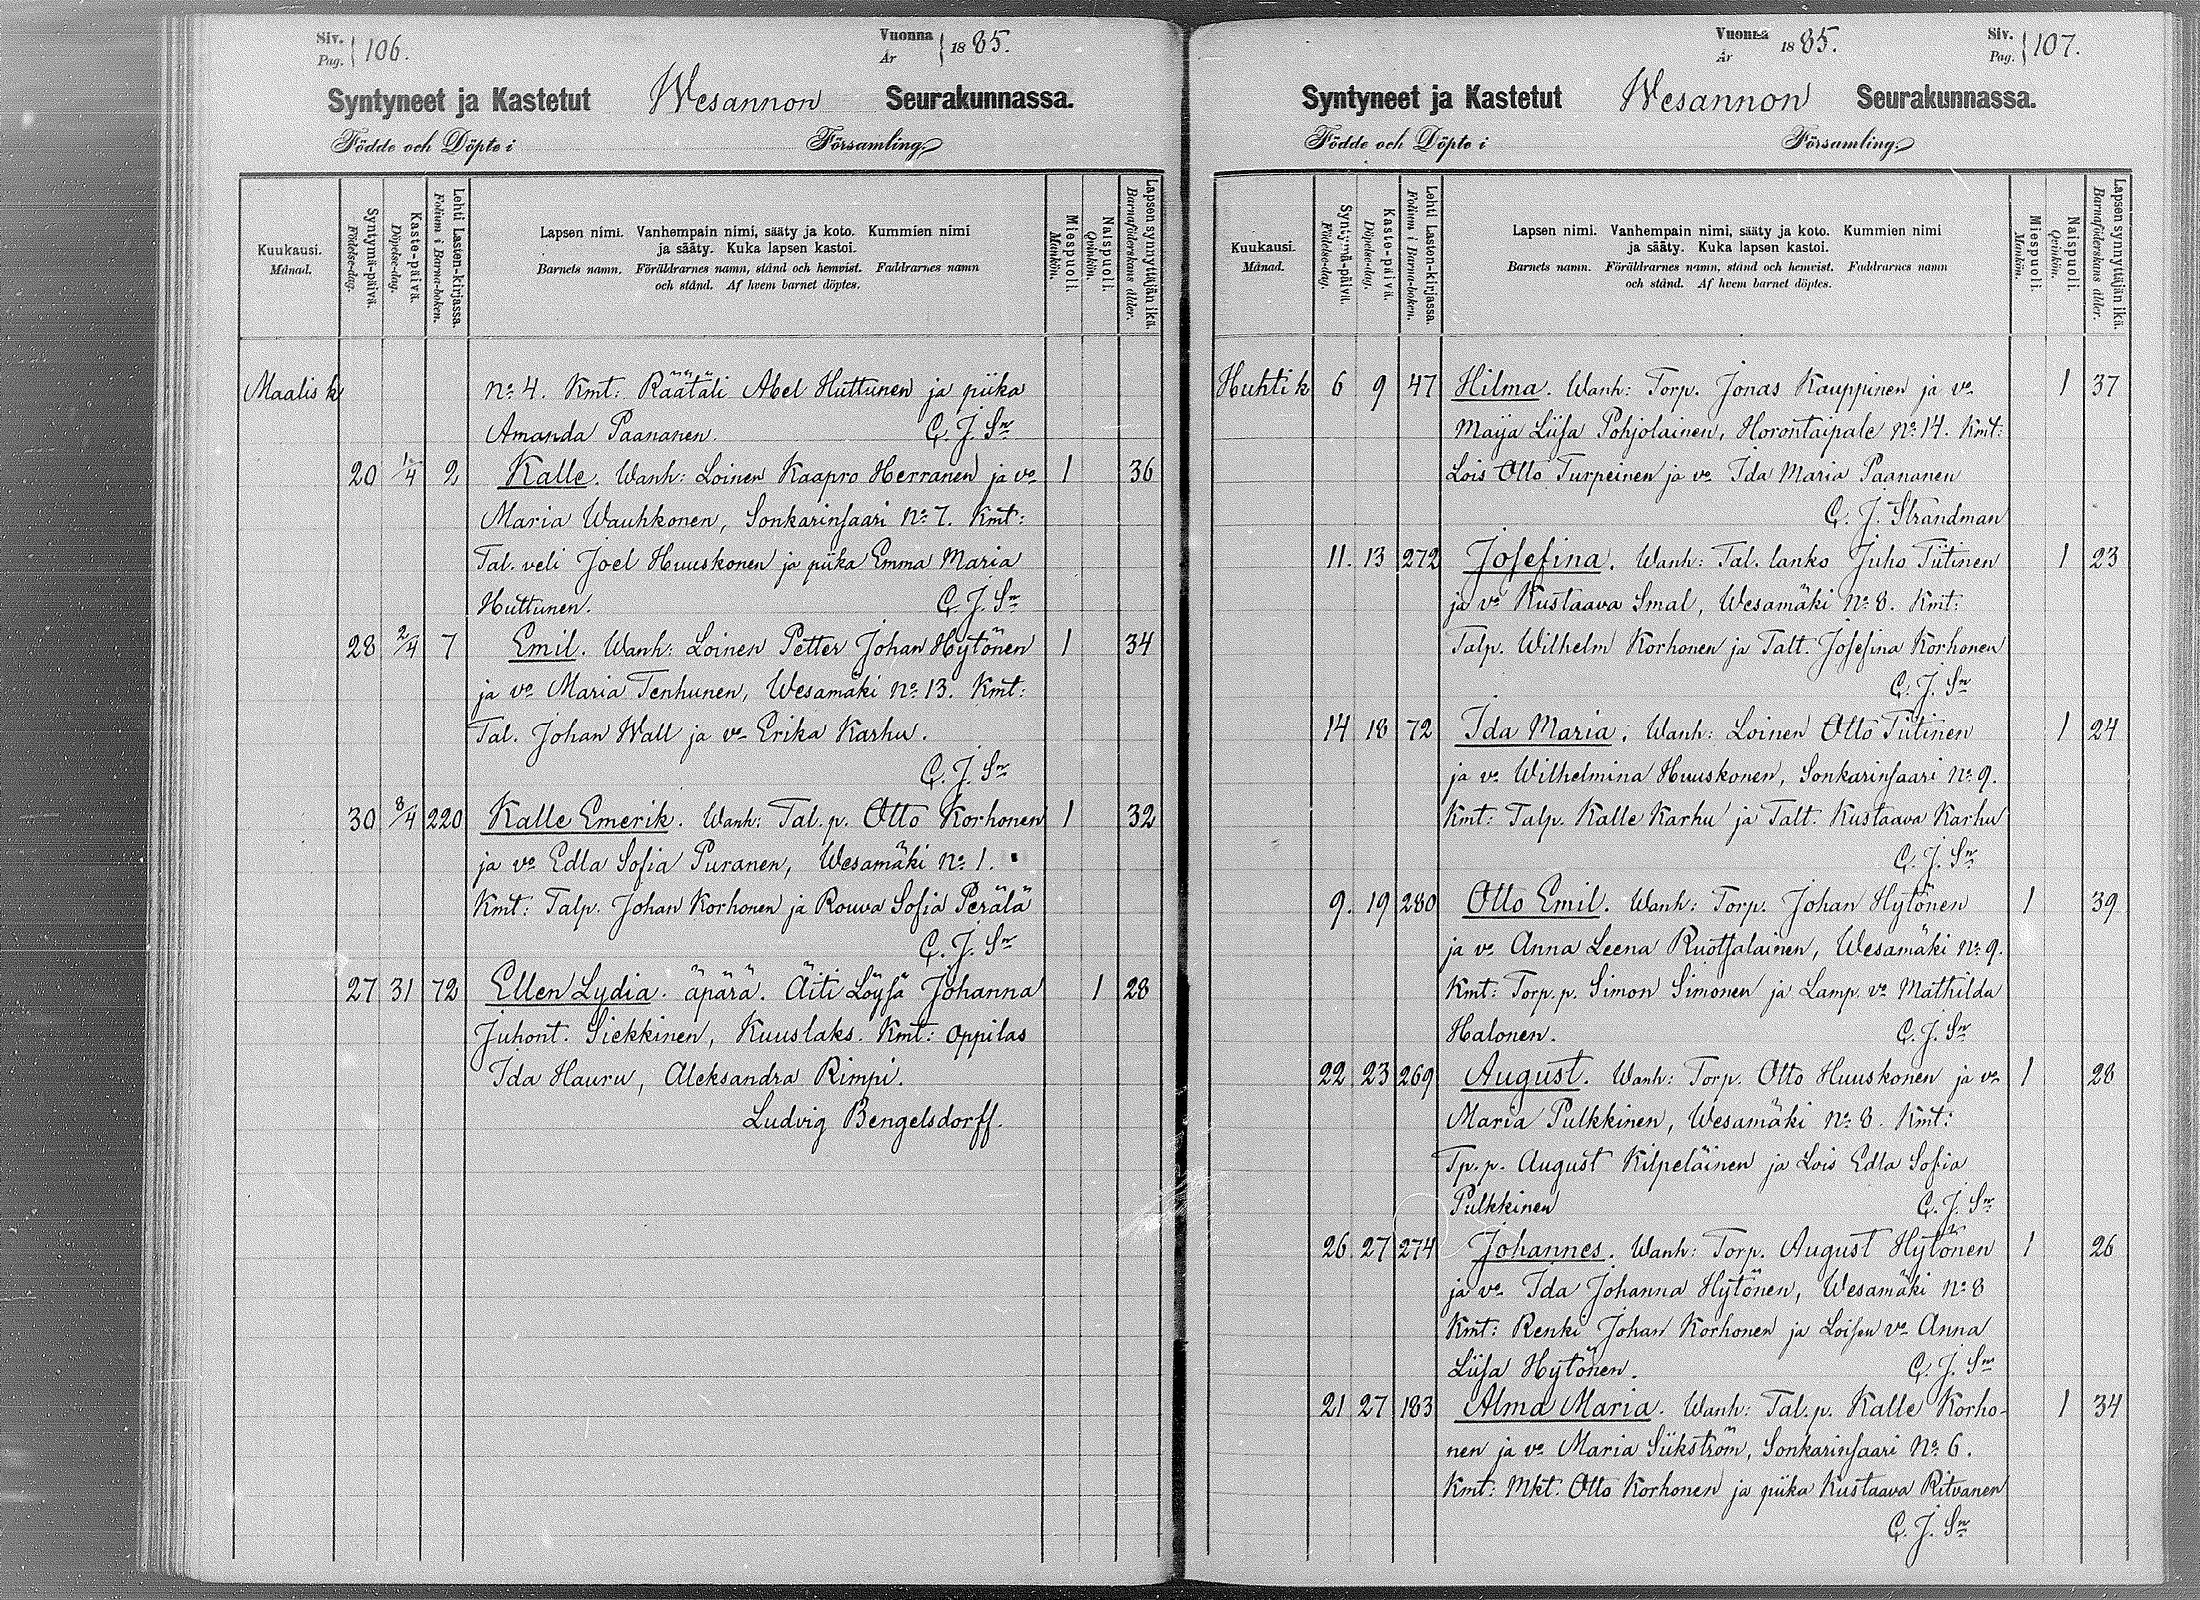 Siv. Pag. 106.
Vuonna År 1885.
Syntyneet ja Kastetut Wesannon Seurakunnassa.
Födde och Döpte i Församling.
Kuukausi. Månad.
Syntymä-päivä. Födelse-dag.
Kaste-päivä. Döpelse-dag.
Lehti Lasten-kirjassa. Folium i Barna-boken.
Lapsen nimi. Vanhempain nimi, sääty ja koto. Kummien nimi
ja sääty. Kuka lapsen kastoi.
Barnets namn. Föräldrarnes namn, stånd och hemvist. Faddrarnes namn
och stånd. Af hvem barnet döptes.
Miespuoli. Mankön.
Naispuoli. Qvinkön.
Lapsen synnyttäjän ikä. Barnaföderskans ålder.
Maalis k No 4. Kmt: Räätäli Abel Huttunen ja piika
Amanda Paananen. C. J. Sn
20 1/4 2 Kalle. Wanh: Loinen Kaapro Herranen ja vo 1 36
Maria Wauhkonen, Sonkarinsaari No 7. Kmt:
Tal. veli Joel Huuskonen ja piika Emma Maria
Huttunen. C. J. Sn
28 2/4 7 Emil. Wanh: Loinen Petter Johan Hytönen 1 34
ja vo Maria Tenhunen, Wesamäki No 13. Kmt:
Tal. Johan Wall ja vo Erika Karhu.
C. J. Sn
30 8/4 220 Kalle Emerik. Wanh: Tal. p. Otto Korhonen 1 32
ja vo Edla Sofia Puranen, Wesamäki No 1.
Kmt: Talp. Johan Korhonen ja Rouva Sofia Perälä
C. J. Sn
27 31 72 Ellen Lydia. äpärä. Äiti Löysä Johanna 1 28
Juhont. Siekkinen, Kuuslaks. Kmt: oppilas
Ida Hauru, Aleksandra Rimpi.
Ludvig Bengelsdorff.
Vuonna År 1885.
Siv. Pag. 107.
Syntyneet ja Kastetut Wesannon Seurakunnassa.
Födde och Döpte i Församling.
Kuukausi. Månad.
Syntymä-päivä. Födelse-dag.
Kaste-päivä. Döpelse-dag.
Lehti Lasten-kirjassa. Folium i Barna-boken.
Lapsen nimi. Vanhempain nimi, sääty ja koto. Kummien nimi
ja sääty. Kuka lapsen kastoi.
Barnets namn. Föräldrarnes namn, stånd och hemvist. Faddrarnes namn
och stånd. Af hvem barnet döptes.
Miespuoli. Mankön.
Naispuoli. Qvinkön.
Lapsen synnyttäjän ikä. Barnaföderskans ålder.
Huhti k 6 9 47 Hilma. Wanh: Torp. Jonas Kauppinen ja vo 1 37
Maija Liisa Pohjolainen, Horontaipale No 14. Kmt:
Lois Otto Turpeinen ja vo Ida Maria Paananen
C. J. Strandman
11. 13 272 Josefina. Wanh: Tal. lanko Juho Tiitinen 1 23
ja vo Kustaava Smal, Wesamäki No 8. Kmt:
Talp. Wilhelm Korhonen ja Talt. Josefina Korhonen
C. J. Sn
14 18 72 Ida Maria. Wanh: Loinen Otto Tiitinen 1 24
ja vo Wilhelmina Huuskonen, Sonkarinsaari No 9.
Kmt: Talp. Kalle Karhu ja Talt. Kustaava Karhu
C. J. Sn
9. 19 280 Otto Emil. Wanh: Torp. Johan Hytönen 1 39
ja vo Anna Leena Ruotsalainen, Wesamäki No 9.
Kmt: Torp. p. Simon Simonen ja Lamp. vo Mathilda
Halonen. C. J. Sn
22 23 269 August. Wanh: Torp. Otto Huuskonen ja vo 1 28
Maria Pulkkinen, Wesamäki No 8. Kmt:
Tp. p. August Kilpeläinen ja Lois Edla Sofia
Pulkkinen C. J. Sn
26 27 274 Johannes. Wanh: Torp. August Hytönen 1 26
ja vo Ida Johanna Hytönen, Wesamäki No 8
Kmt: Renki Johan Korhonen ja Loisen vo Anna
Liisa Hytönen. C. J. Sn
21 27 183 Alma Maria. Wanh: Tal. p. Kalle Korho- 1 34
nen ja vo Maria Siikström, Sonkarinsaari No 6.
Kmt: Mkt. Otto Korhonen ja piika Kustaava Ritvanen
C. J. Sn